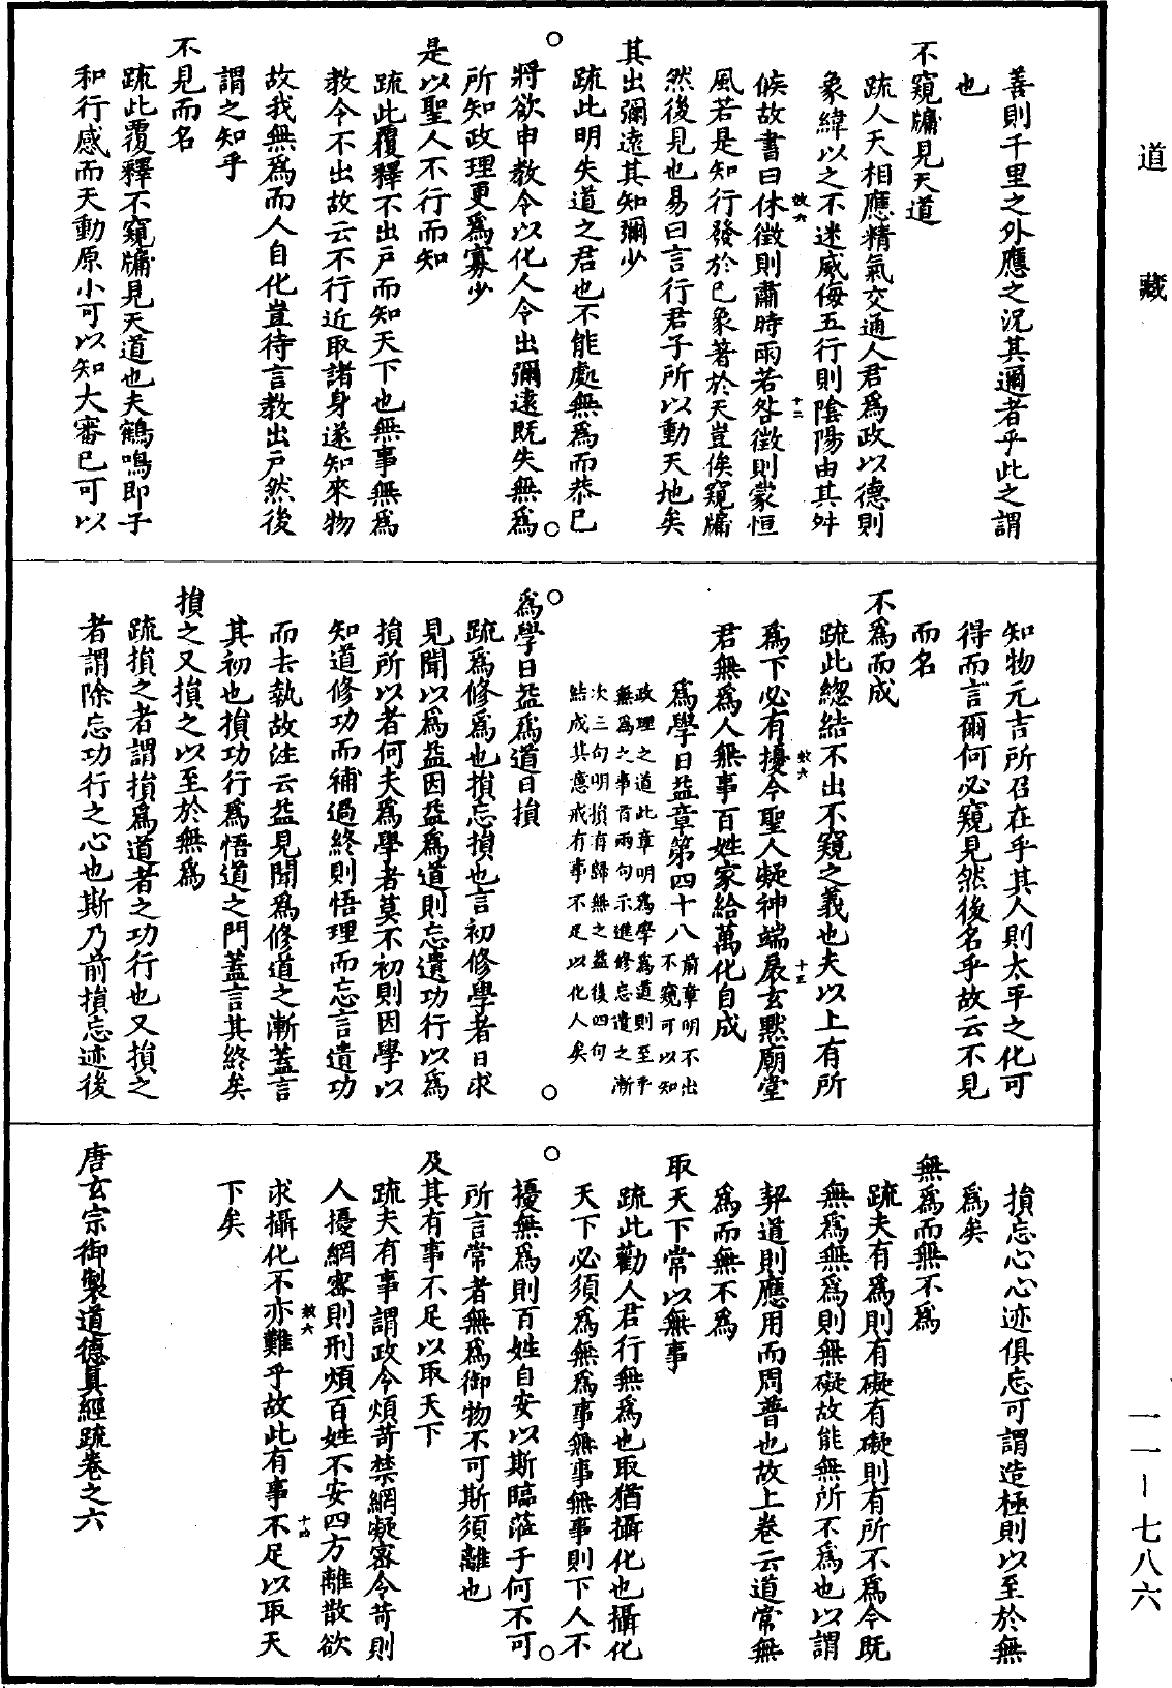 道藏
善則千里之外應之況其邇者乎此之謂
也
不窺牖見天道
疏人天相應精氣交通人君為政以德則
象緯以之不迷威侮五行則陰陽由其舛
候故書曰休徵則肅時雨若咎徵則蒙恒
風若是知行發於己象著於天豈俟窺牖
然後見也易曰言行君子所以動天地矣
其出彌遠其知彌少
疏此明失道之君也不能處無為而恭己
將欲申教令以化人令出彌遠既失無為
所知政理更為寡少
是以聖人不行而知
疏此覆釋不出戶而知天下也無事無為
教令不出故云不行近取諸身遂知來物
故我無為而人自化豈待言教出戶然後
謂之知乎
不見而名
疏此覆釋不窺牖見天道也夫鶴鳴即子
和行感而天動原小可以知大審己可以
知物元吉所召在乎其人則太平之化可
得而言爾何必窺見然後名乎故云不見
而名
不為而成
疏此總結不出不窺之義也夫以上有所
為下必有擾今聖人凝神端扆玄默廟堂
君無為人無事百姓家給萬化自成
為學日益章第四十八前章明不出不窺可以知
政理之道此章明為學為道則至乎無為之事首兩句示進修忘遺之漸
次三句明損有歸無之益後四句結成其意戒有事不足以化人矣
為學日益為道日損
疏為修為也損忘損也言初修學者日求
見聞以為益因益為道則忘遺功行以為
損所以者何夫為學者莫不初則因學以
知道修功而補過終則悟理而忘言遺功
而去執故注云益見聞為修道之漸蓋言
其初也損功行為悟道之門蓋言其終矣
損之又損之以至於無為
疏損之者謂損為道者之功行也又損之
者謂除忘功行之心也斯乃前損忘迹後
損忘心心迹俱忘可謂造極則以至於無
為矣
無為而無不為
疏夫有為則有礙有礙則有所不為今既
無為無為則無礙故能無所不為也以謂
契道則應用而周普也故上卷云道常無
為而無不為
取天下常以無事
疏此勸人君行無為也取猶攝化也攝化
天下必須為無為事無事無事則下人不
擾無為則百姓自安以斯臨蒞于何不可
所言常者無為御物不可斯須離也
及其有事不足以取天下
疏夫有事謂政令煩苛禁網凝密令苛則
人擾網密則刑煩百姓不安四方離散欲
求攝化不亦難乎故此有事不足以取天
下矣
唐玄宗御製道德真經疏卷之六
一一—七八六